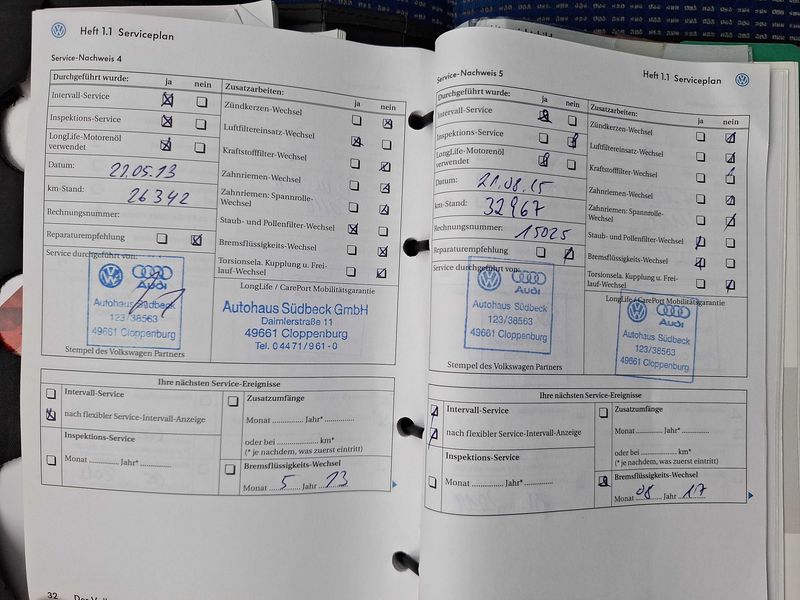 Heft 1.1 Serviceplan
Service-Nachweis 4
Durchgeführt wurde: ja nein
Intervall-Service
Inspektions-Service
LongLife-Motorenöl
verwendet
Datum: 21.05.13
km-Stand: 26342
Rechnungsnummer:
Reparaturempfehlung
Service durchgeführt von:
Audi
Autohaus Südbeck
123/38563
49661 Cloppenburg
Stempel des Volkswagen Partners
Zusatzarbeiten:
ja nein
Zündkerzen-Wechsel
Luftfiltereinsatz-Wechsel
Kraftstofffilter-Wechsel
Zahnriemen-Wechsel
Zahnriemen: Spannrolle-
Wechsel
Staub- und Pollenfilter-Wechsel
Bremsflüssigkeits-Wechsel
Torsionsela. Kupplung u. Frei-
lauf-Wechsel
LongLife / CarePort Mobilitätsgarantie
Autohaus Südbeck GmbH
Daimlerstraße 11
49661 Cloppenburg
Tel. 04471/961-0
Ihre nächsten Service-Ereignisse
Intervall-Service
nach flexibler Service-Intervall-Anzeige
Inspektions-Service
Monat ........... Jahr* ..............
Zusatzumfänge
Monat .............. Jahr* ..............
oder bei .................. km*
(* je nachdem, was zuerst eintritt)
Bremsflüssigkeits-Wechsel
Monat 5 Jahr 13
32
Service-Nachweis 5
Heft 1.1 Serviceplan
Durchgeführt wurde: ja nein
Intervall-Service
Inspektions-Service
LongLife-Motorenöl
verwendet
Datum: 21.08.15
km-Stand: 32967
Rechnungsnummer: 15025
Reparaturempfehlung
Service durchgeführt von:
Audi
Autohaus Südbeck
123/38563
49661 Cloppenburg
Stempel des Volkswagen Partners
Zusatzarbeiten:
ja nein
Zündkerzen-Wechsel
Luftfiltereinsatz-Wechsel
Kraftstofffilter-Wechsel
Zahnriemen-Wechsel
Zahnriemen: Spannrolle-
Wechsel
Staub- und Pollenfilter-Wechsel
Bremsflüssigkeits-Wechsel
Torsionsela. Kupplung u. Frei-
lauf-Wechsel
LongLife / CarePort Mobilitätsgarantie
Audi
Autohaus Südbeck
123/38563
49661 Cloppenburg
Ihre nächsten Service-Ereignisse
Intervall-Service
nach flexibler Service-Intervall-Anzeige
Inspektions-Service
Monat ........... Jahr* ..............
Zusatzumfänge
Monat .............. Jahr* ..............
oder bei .................. km*
(* je nachdem, was zuerst eintritt)
Bremsflüssigkeits-Wechsel
Monat 08 Jahr 17